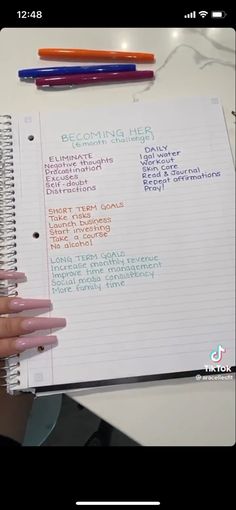 12:48
BECOMING HER
(6 month challenge)
ELIMINATE
Negative thoughts
Procrastination
Excuses
Self-doubt
Distractions
DAILY
1 gal water
Workout
Skin Care
Read & Journal
Repeat affirmations
Pray!
SHORT TERM GOALS
Take risks
Launch business
Start investing
Take a course
No alcohol
LONG TERM GOALS
Increase monthly revenue
Improve time management
Social media consistency
More family time
TikTok